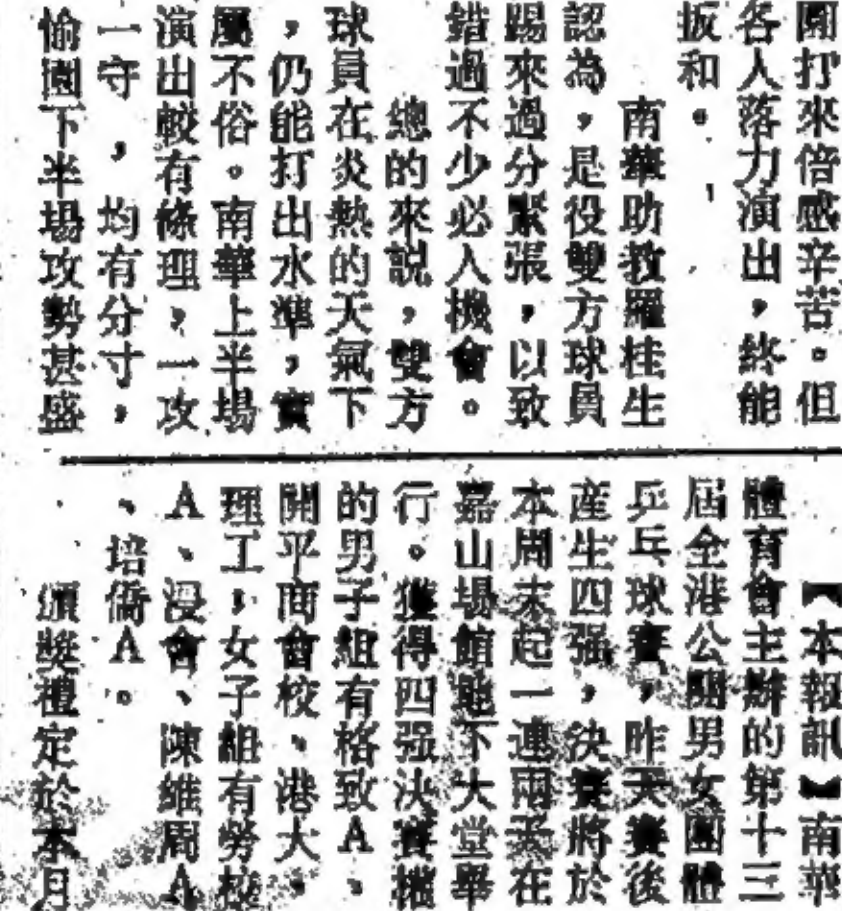 開打來倍感辛苦。但
各人落力演出，終能
扳和。
南華助教羅桂生
認為，是役雙方球員
踢來過分緊張，以致
錯過不少必入機會。
總的來説，雙方
球員在炎熱的天氣下
，仍能打出水準，實
屬不俗。南華上半場
演出較有條理，一攻
一守，均有分寸，
愉園下半場攻勢甚盛
【本報訊】南華
體育會主辦的第十三
屆全港公開男女團體
乒乓球賽，昨天賽後
産生四强，決賽將於
本周末起一連兩天在
嘉山場館地下大堂舉
行。獲得四强決賽權
的男子組有格致A、
開平商會校、港大、
理工，女子組有勞校
A、浸會、陳維周A
、培僑A。
頒獎禮定於本月